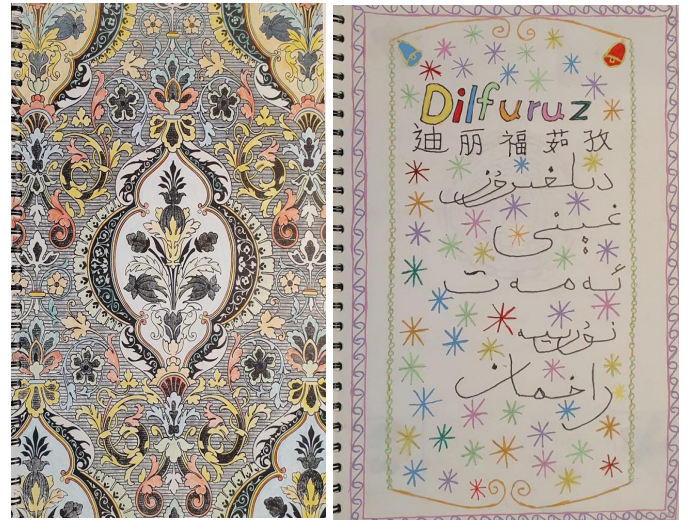 Dilfuruz
迪丽福茹孜
دىلفىرۇز
غېنى
ئەمەت
نۇرىيە
راخمان